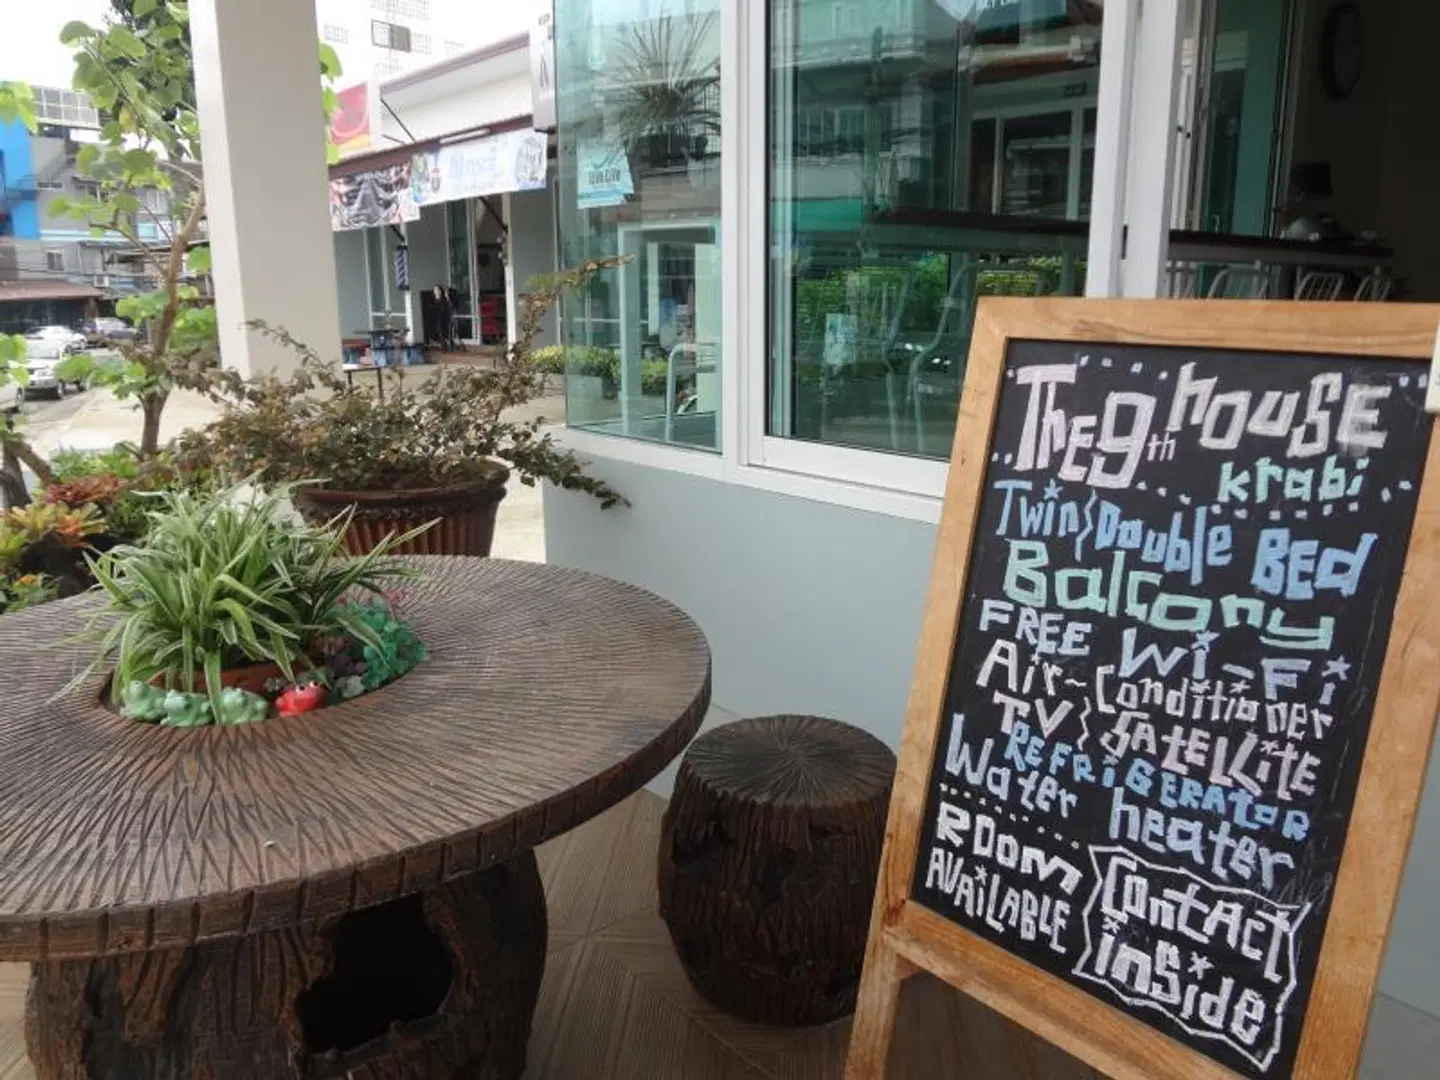 The 9th house
krabi
Twin/Double BEd
Balcony
FREE Wi-Fi
Air-Conditioner
TV/SATELLiTE
REFRiGERATOR
Water heater
ROOM
AVAiLABLE
ContAct
inSide